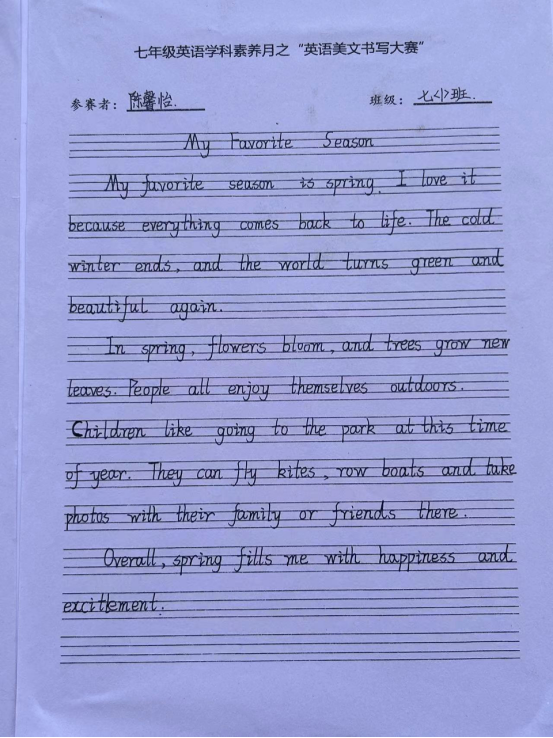 七年级英语学科素养月之“英语美文书写大赛”
参赛者：陈馨怡. 班级：七<1>班.
My Favorite Season
My favorite season is spring. I love it
because everything comes back to life. The cold
winter ends, and the world turns green and
beautiful again.
In spring, flowers bloom, and trees grow new
leaves. People all enjoy themselves outdoors.
Children like going to the park at this time
of year. They can fly kites, row boats and take
photos with their family or friends there.
Overall, spring fills me with happiness and
excitlement.